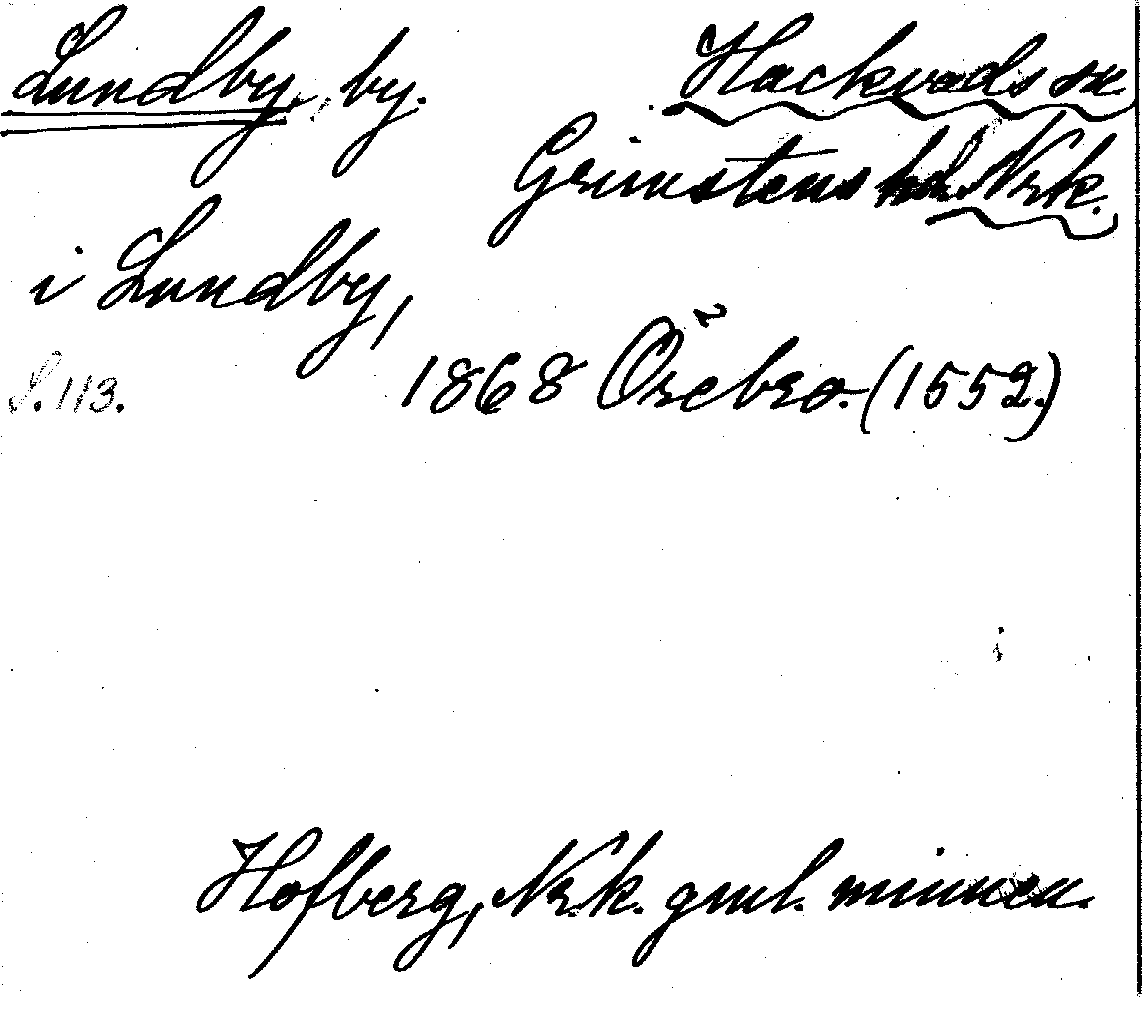 Lundby, by. Hackvads sn
Grimstens hd. Nrk.
i Lundby,
S. 113. 1868 Örebro. (1552.)
Hofberg, Nrk. gml. minnen.